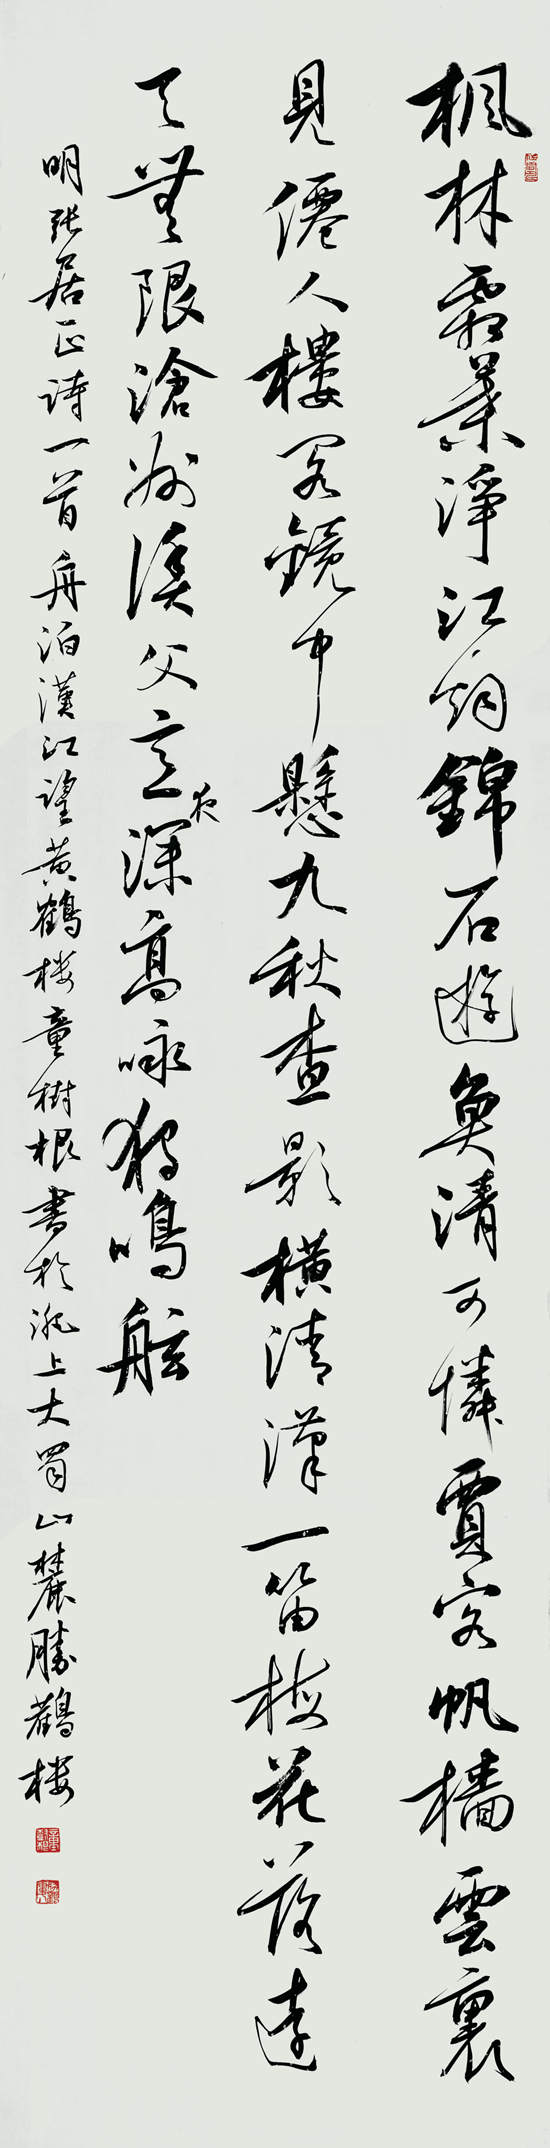 楓林霜葉淨江烟錦石遊魚清可憐賈客帆檣雲裏
見僊人樓閣鏡中懸九秋查影橫清漢一笛梅花落遠
天無限滄洲漁父意夜深高咏獨鳴舷
明張居正詩一首舟泊漢江望黃鶴楼童樹根書於淝上大蜀山麓勝鶴楼